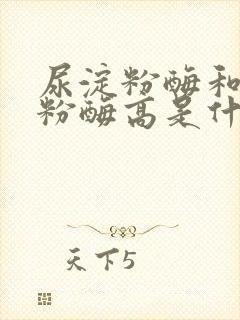 尿淀粉酶和
粉酶高是什
天下5